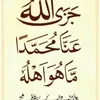 جَزَى اللّٰهُ
عَنَّا مُحَمَّدًا
مَّا هُوَ أَهْلُهُ